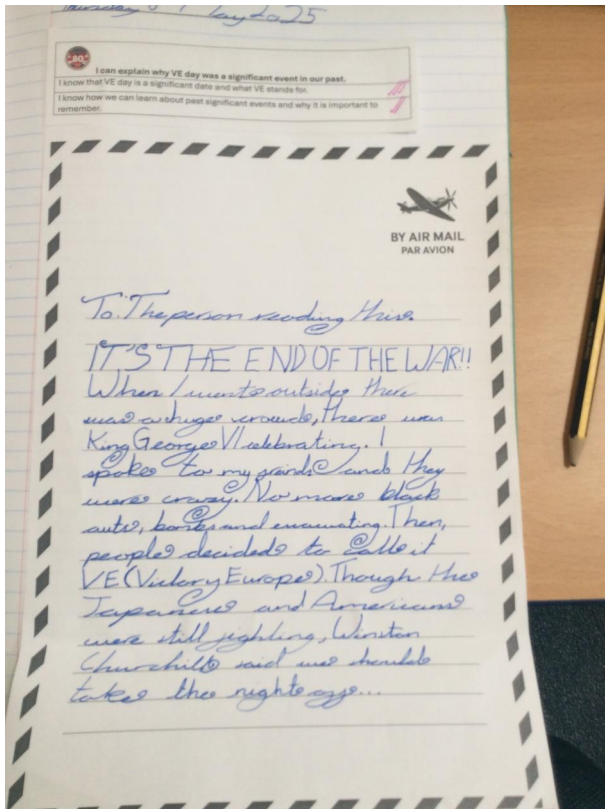 Thursday May 2025
80
I can explain why VE day was a significant event in our past.
I know that VE day is a significant date and what VE stands for.
I know how we can learn about past significant events and why it is important to
remember.
BY AIR MAIL
PAR AVION
To: The person reading this.
IT'S THE END OF THE WAR!!
When I went outside there
was a huge crowd, there was
King George VI celebrating. I
spoke to my and they
were crazy. No more black
outs, bombs and evacuating. Then,
people decided to call it
VE (Victory Europe). Though the
Japanese and Americans
were still fighting, Winston
Churchill said we should
take the night off...